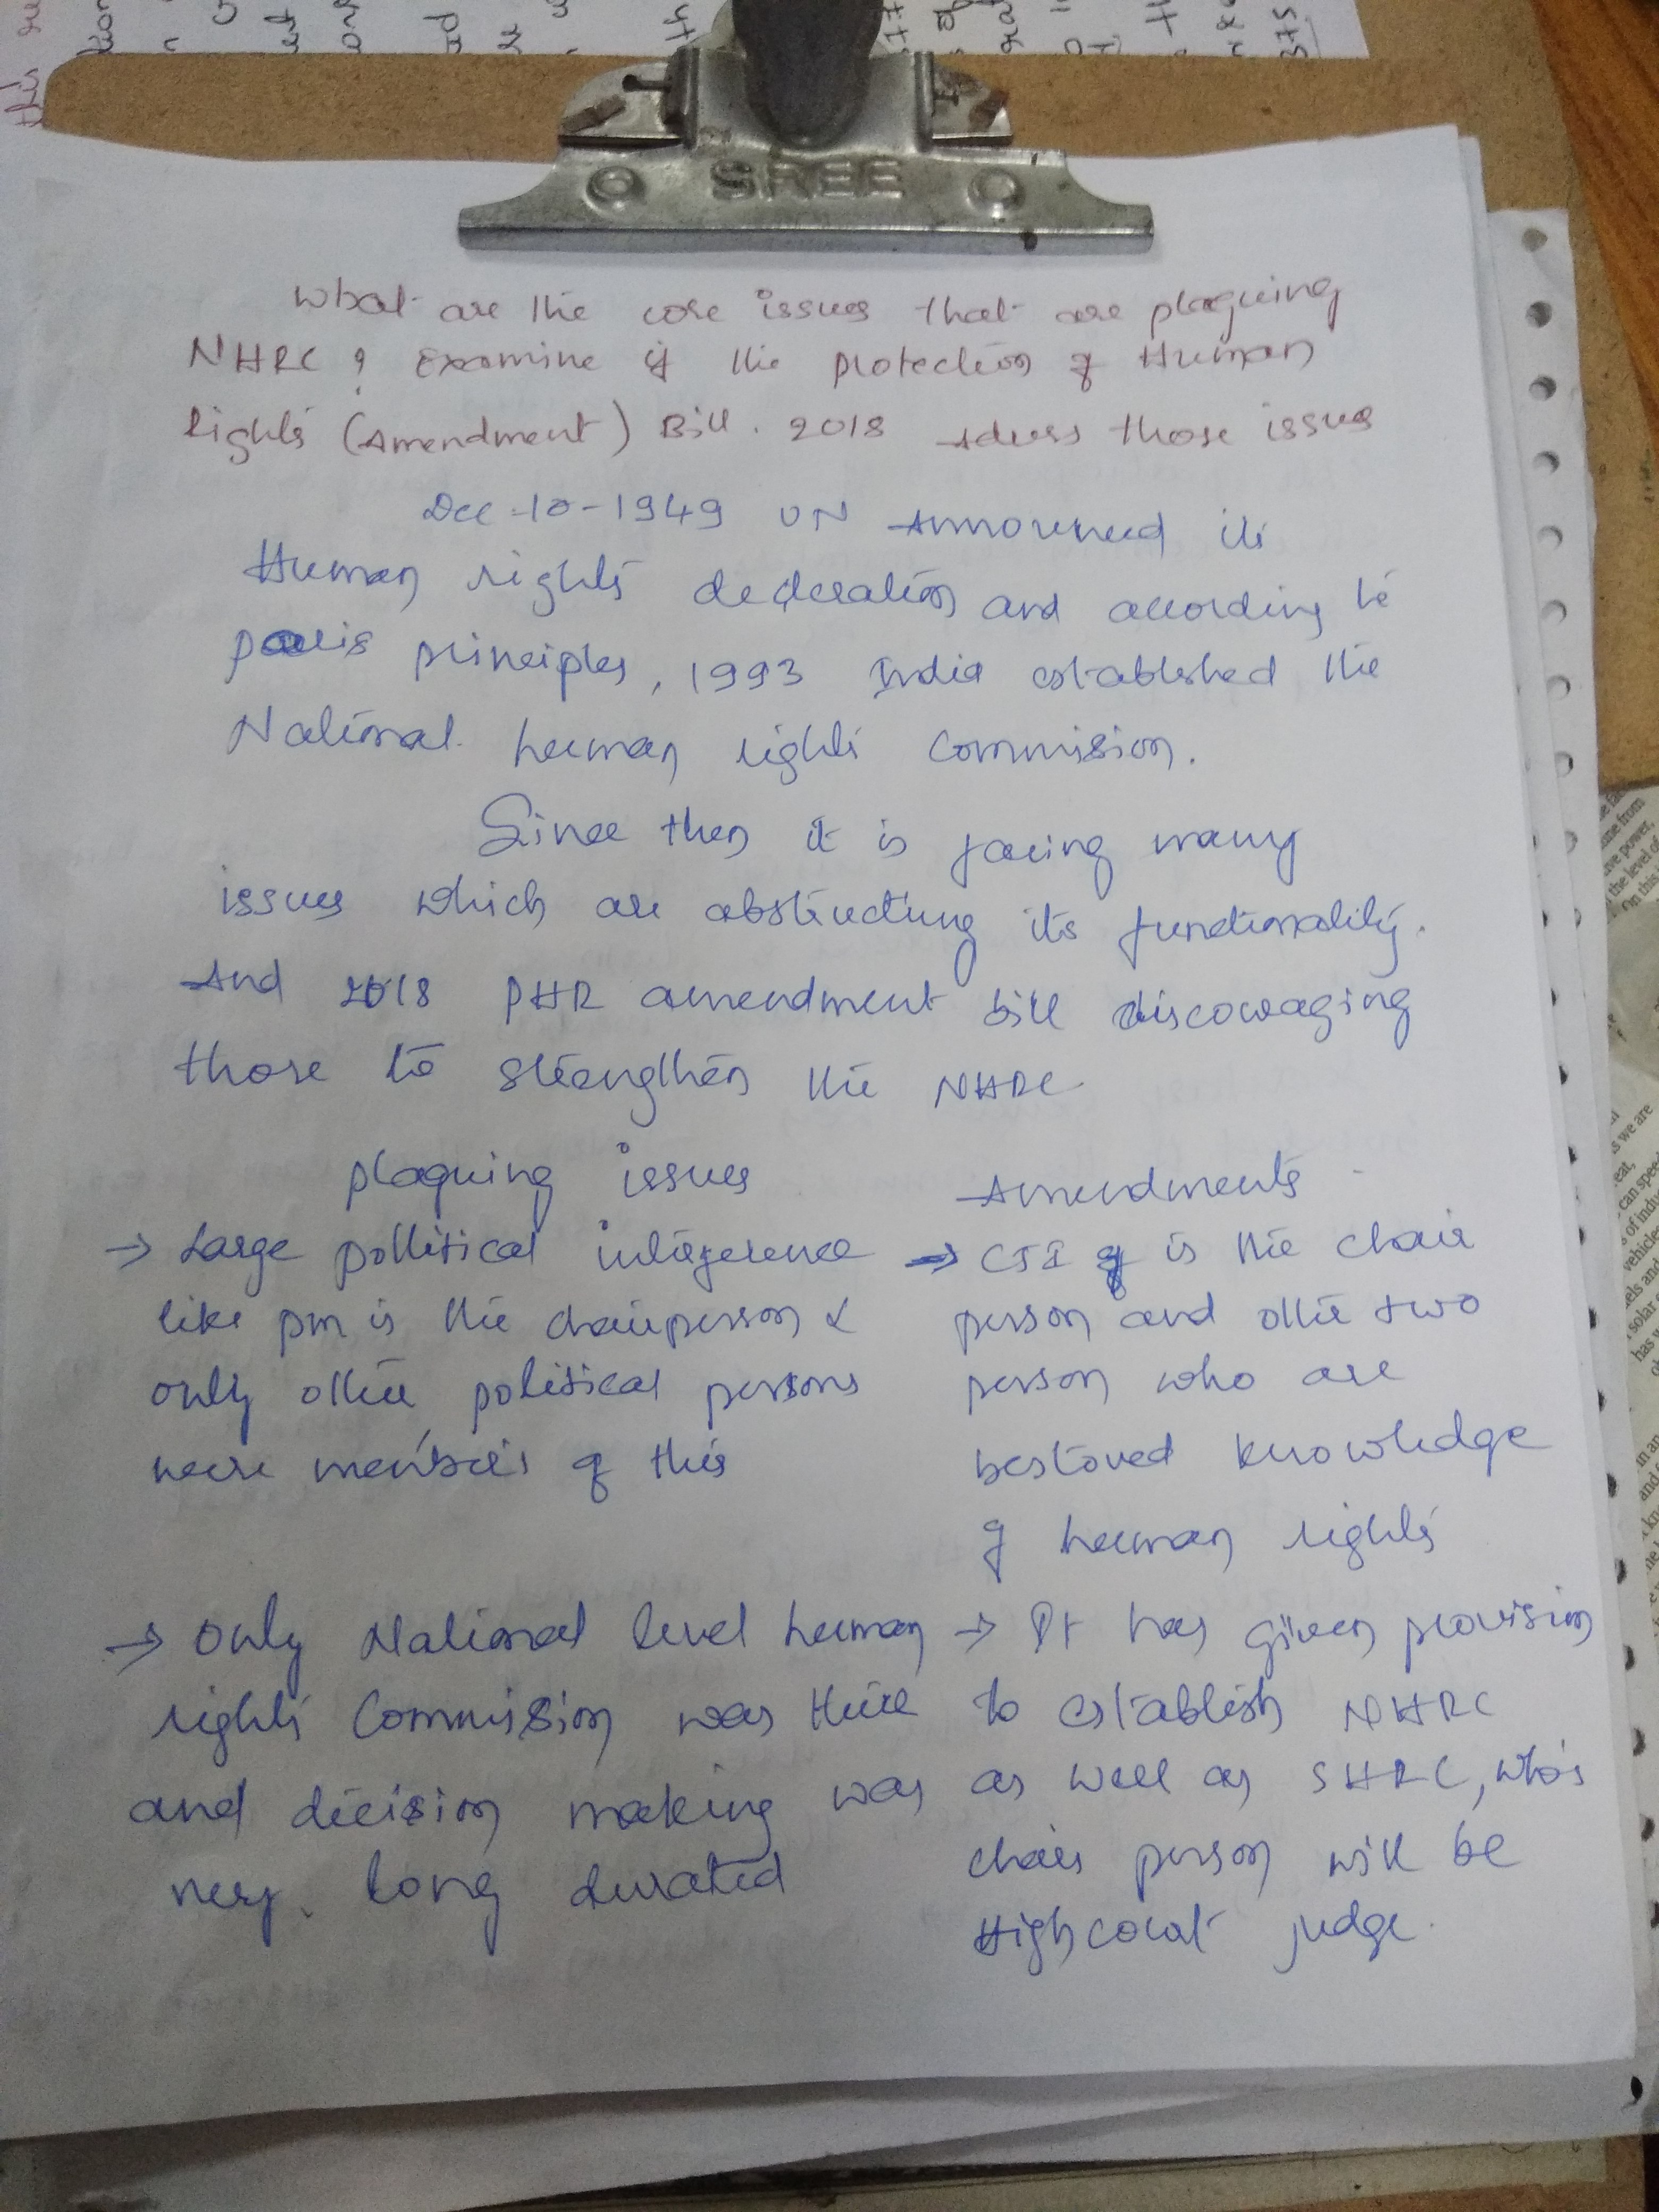 SREE
What are the core issues that are plaguing
NHRC ? Examine if the protection of Human
Rights (Amendment) Bill. 2018 Adress those issues
Dec-10-1949 UN Announced its
Human rights decleration and according to
paris principles, 1993 India established the
National human rights commission.
Since then it is facing many
issues which are abstructing its functionality.
And 2018 PHR amendment bill discouraging
those to strengthen the NHRC
plaguing issues
→ Large political interference
like pm is the chairperson &
only other political persons
were members of this
→ Only National level human
rights Commission was there
and decision making was
very long durated
Amendments
→ CJI is the chair
person and other two
person who are
bestoved knowledge
of human rights
→ It has given provision
to establish NHRC
as well as SHRC, who's
chair person will be
Highcourt judge.